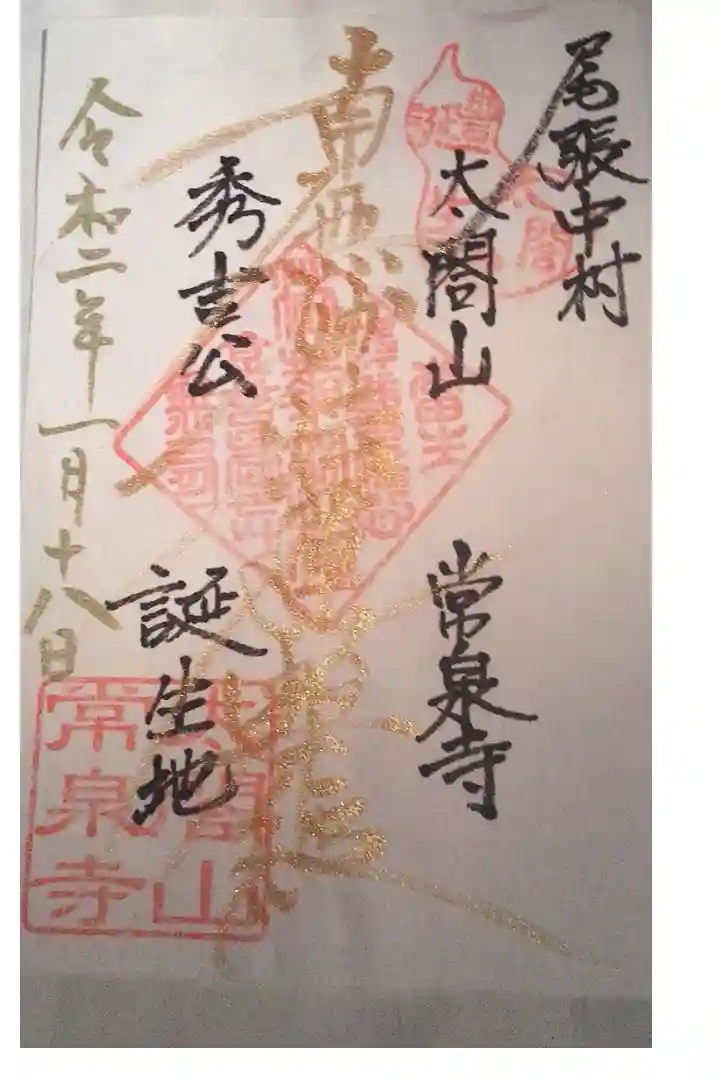 尾張中村
太閤山
常泉寺
南無妙法蓮華経
秀吉公
誕生地
令和二年一月十八日
豊
太閤
太閤山
常泉寺